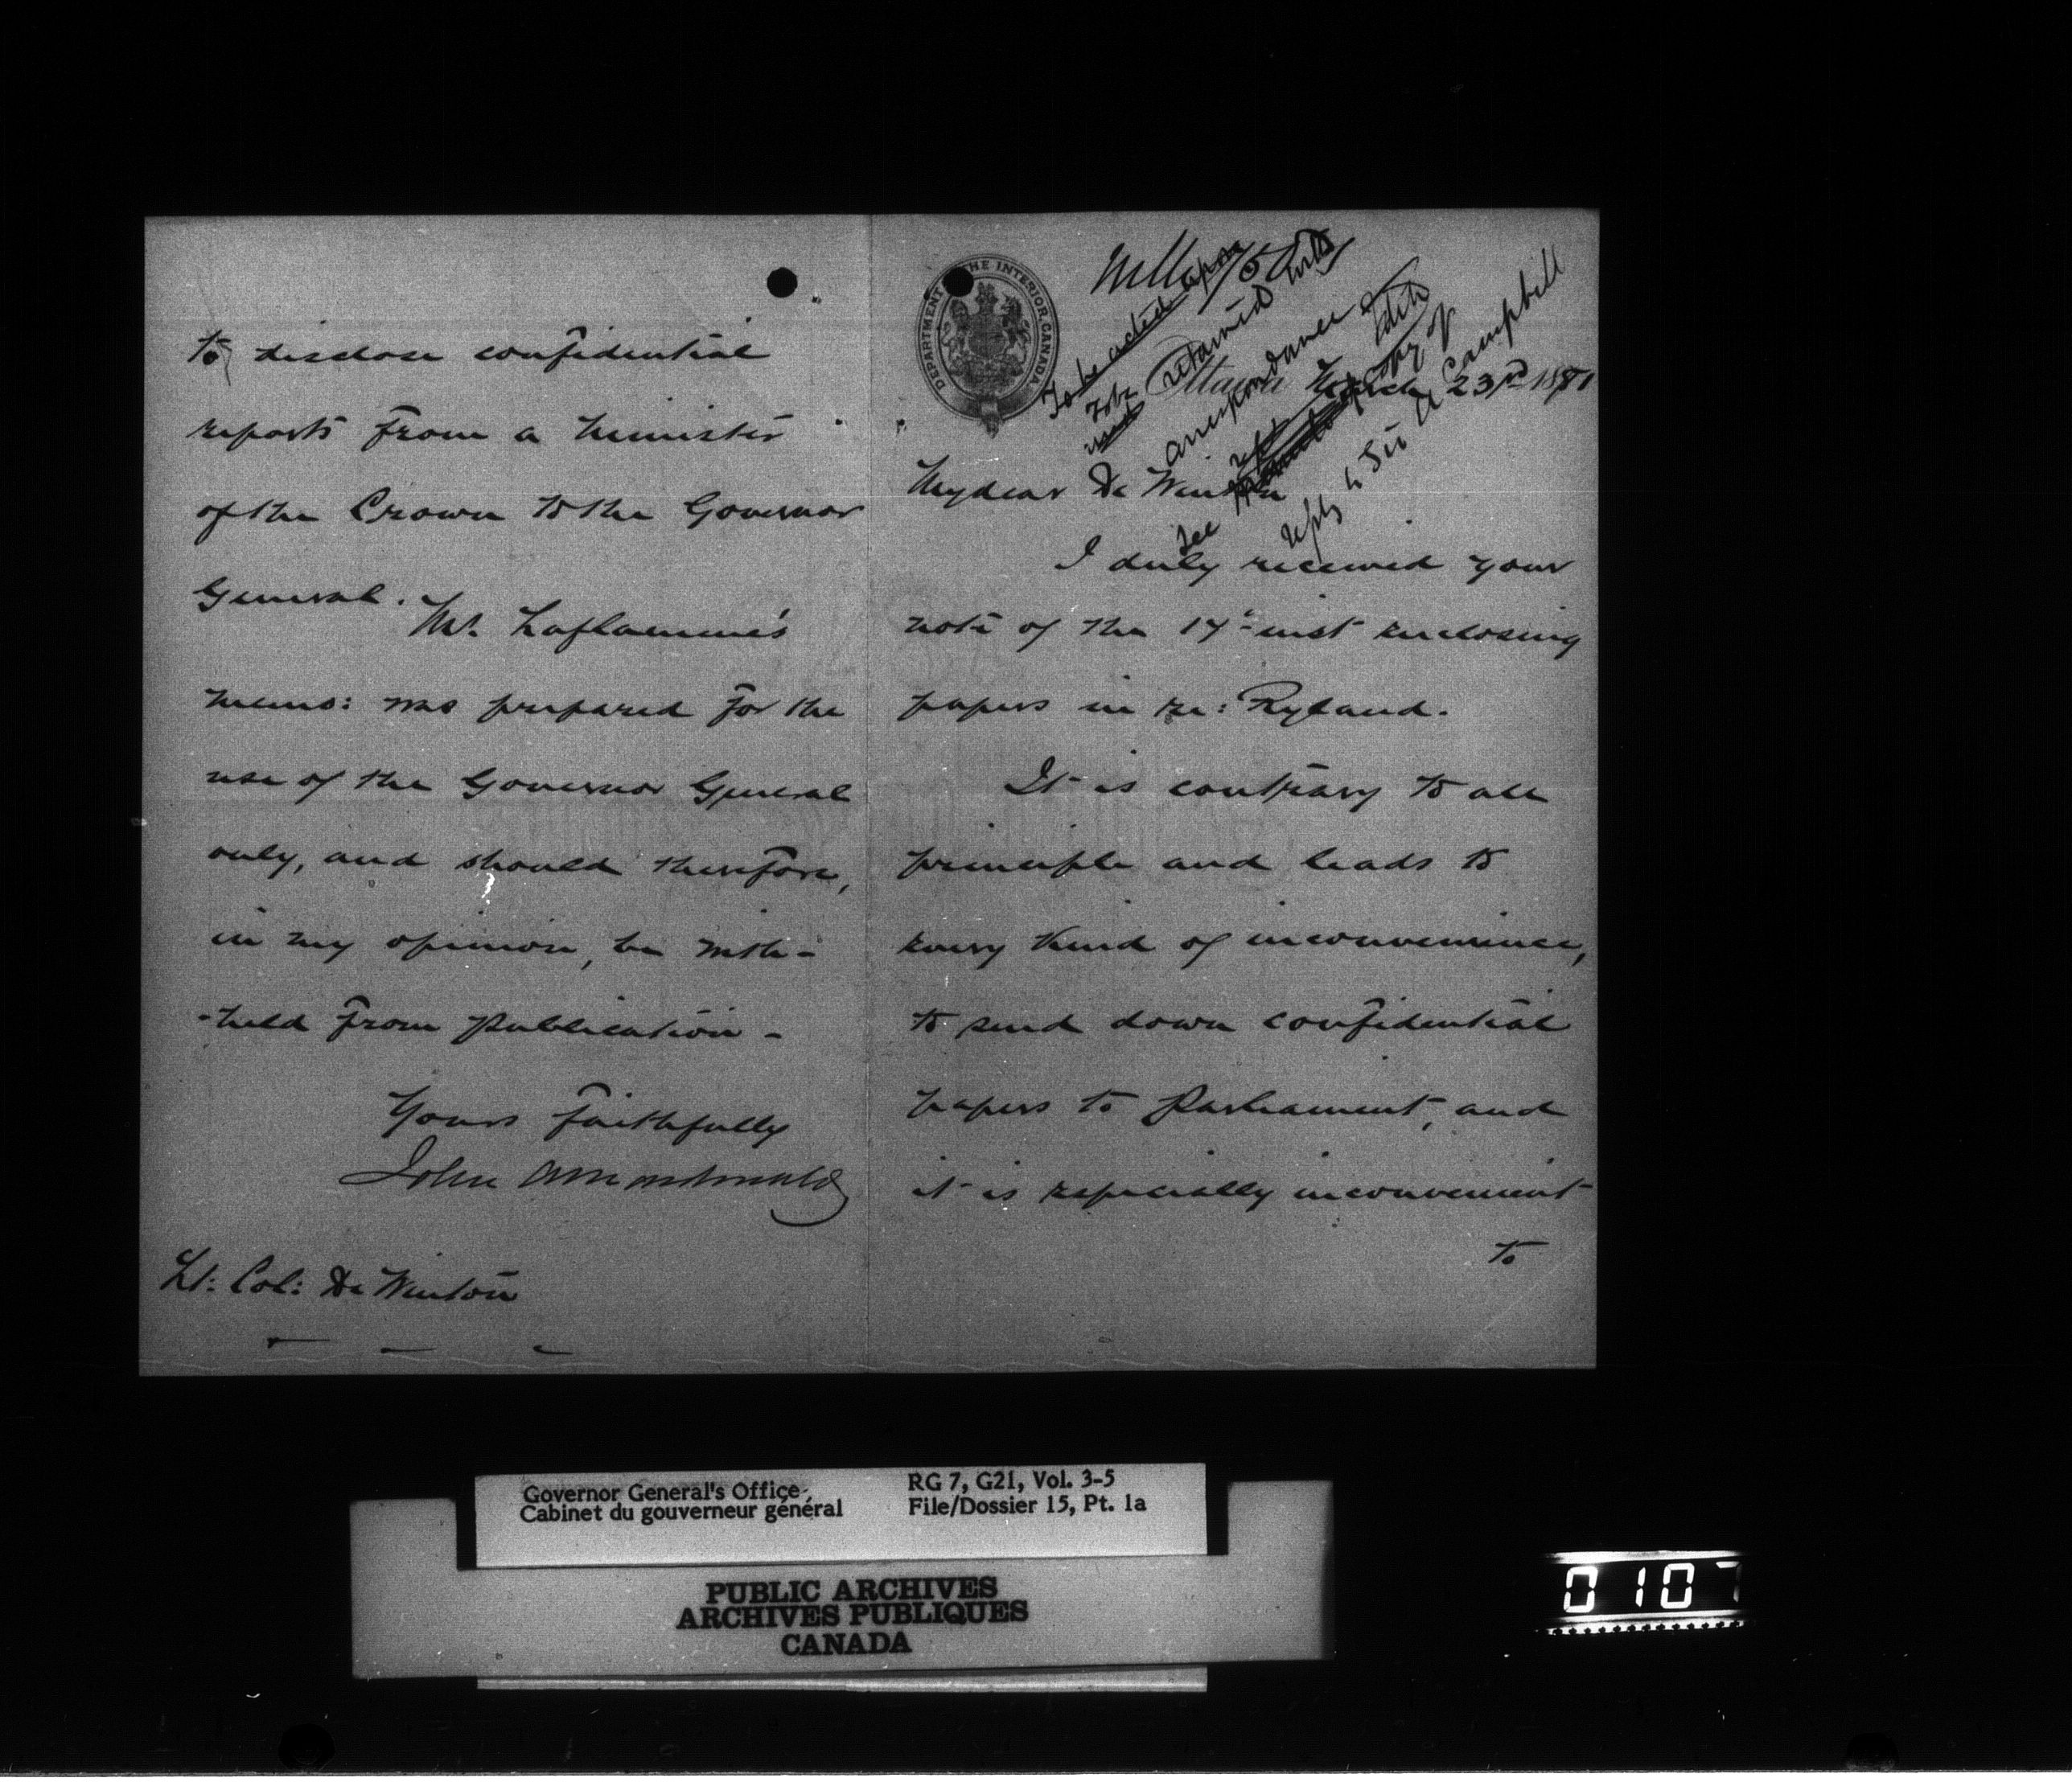 DEPARTMENT OF THE INTERIOR, CANADA.
To be acted upon
To be retained with
correspondence
see
copy of
reply to Sir A Campbell
Ottawa March 23rd 1881
My dear De Winton
I duly received your
note of the 17th inst enclosing
papers in re: Ryland.
It is contrary to all
principle and leads to
every kind of inconvenience,
to send down confidential
papers to Parliament, and
it is especially inconvenient
to
to disclose confidential
reports from a Minister
of the Crown to the Governor
General.
Mr. Laflamme's
memo: was prepared for the
use of the Governor General
only, and should therefore,
in my opinion, be with-
-held from publication -
Yours faithfully
John A Macdonald
Lt: Col: De Winton
Governor General's Office
Cabinet du gouverneur général
RG 7, G21, Vol. 3-5
File/Dossier 15, Pt. 1a
PUBLIC ARCHIVES
ARCHIVES PUBLIQUES
CANADA
0107